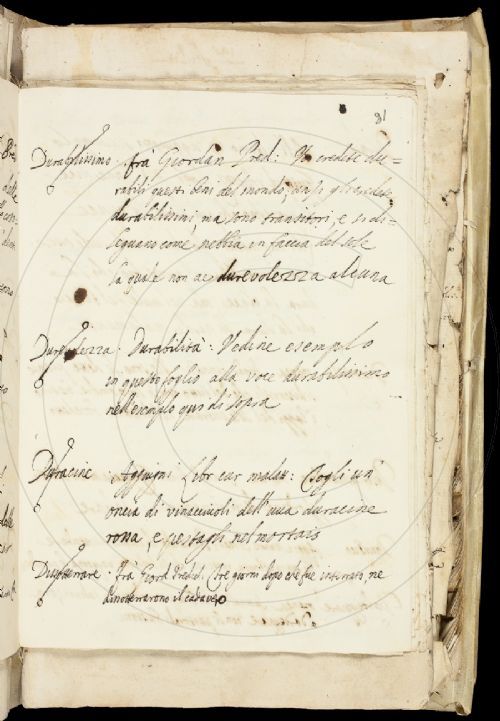 81
Durabilissimo. fra Giordan Pred: Vi credete du=
rabili questi beni del mondo,
durabilissimi, ma sono transitori, e si di=
leguano come nebbia in faccia del sole
la quale non ae durevolezza alcuna
Durevolezza. Durabilità: Vedine esempio
in questo foglio alla voce durabilissimo
nell'esempio qui di sopra
Duracine. Aggiugni libr cur malatt: Togli un'
oncia di vinacciuoli dell'uva duracine
rossa, e pestagli nel mortaio
Disotterrare. Fra Giord Pred: Tre giorni dopo che fue interrato, ne
disotterrarono il cadavero